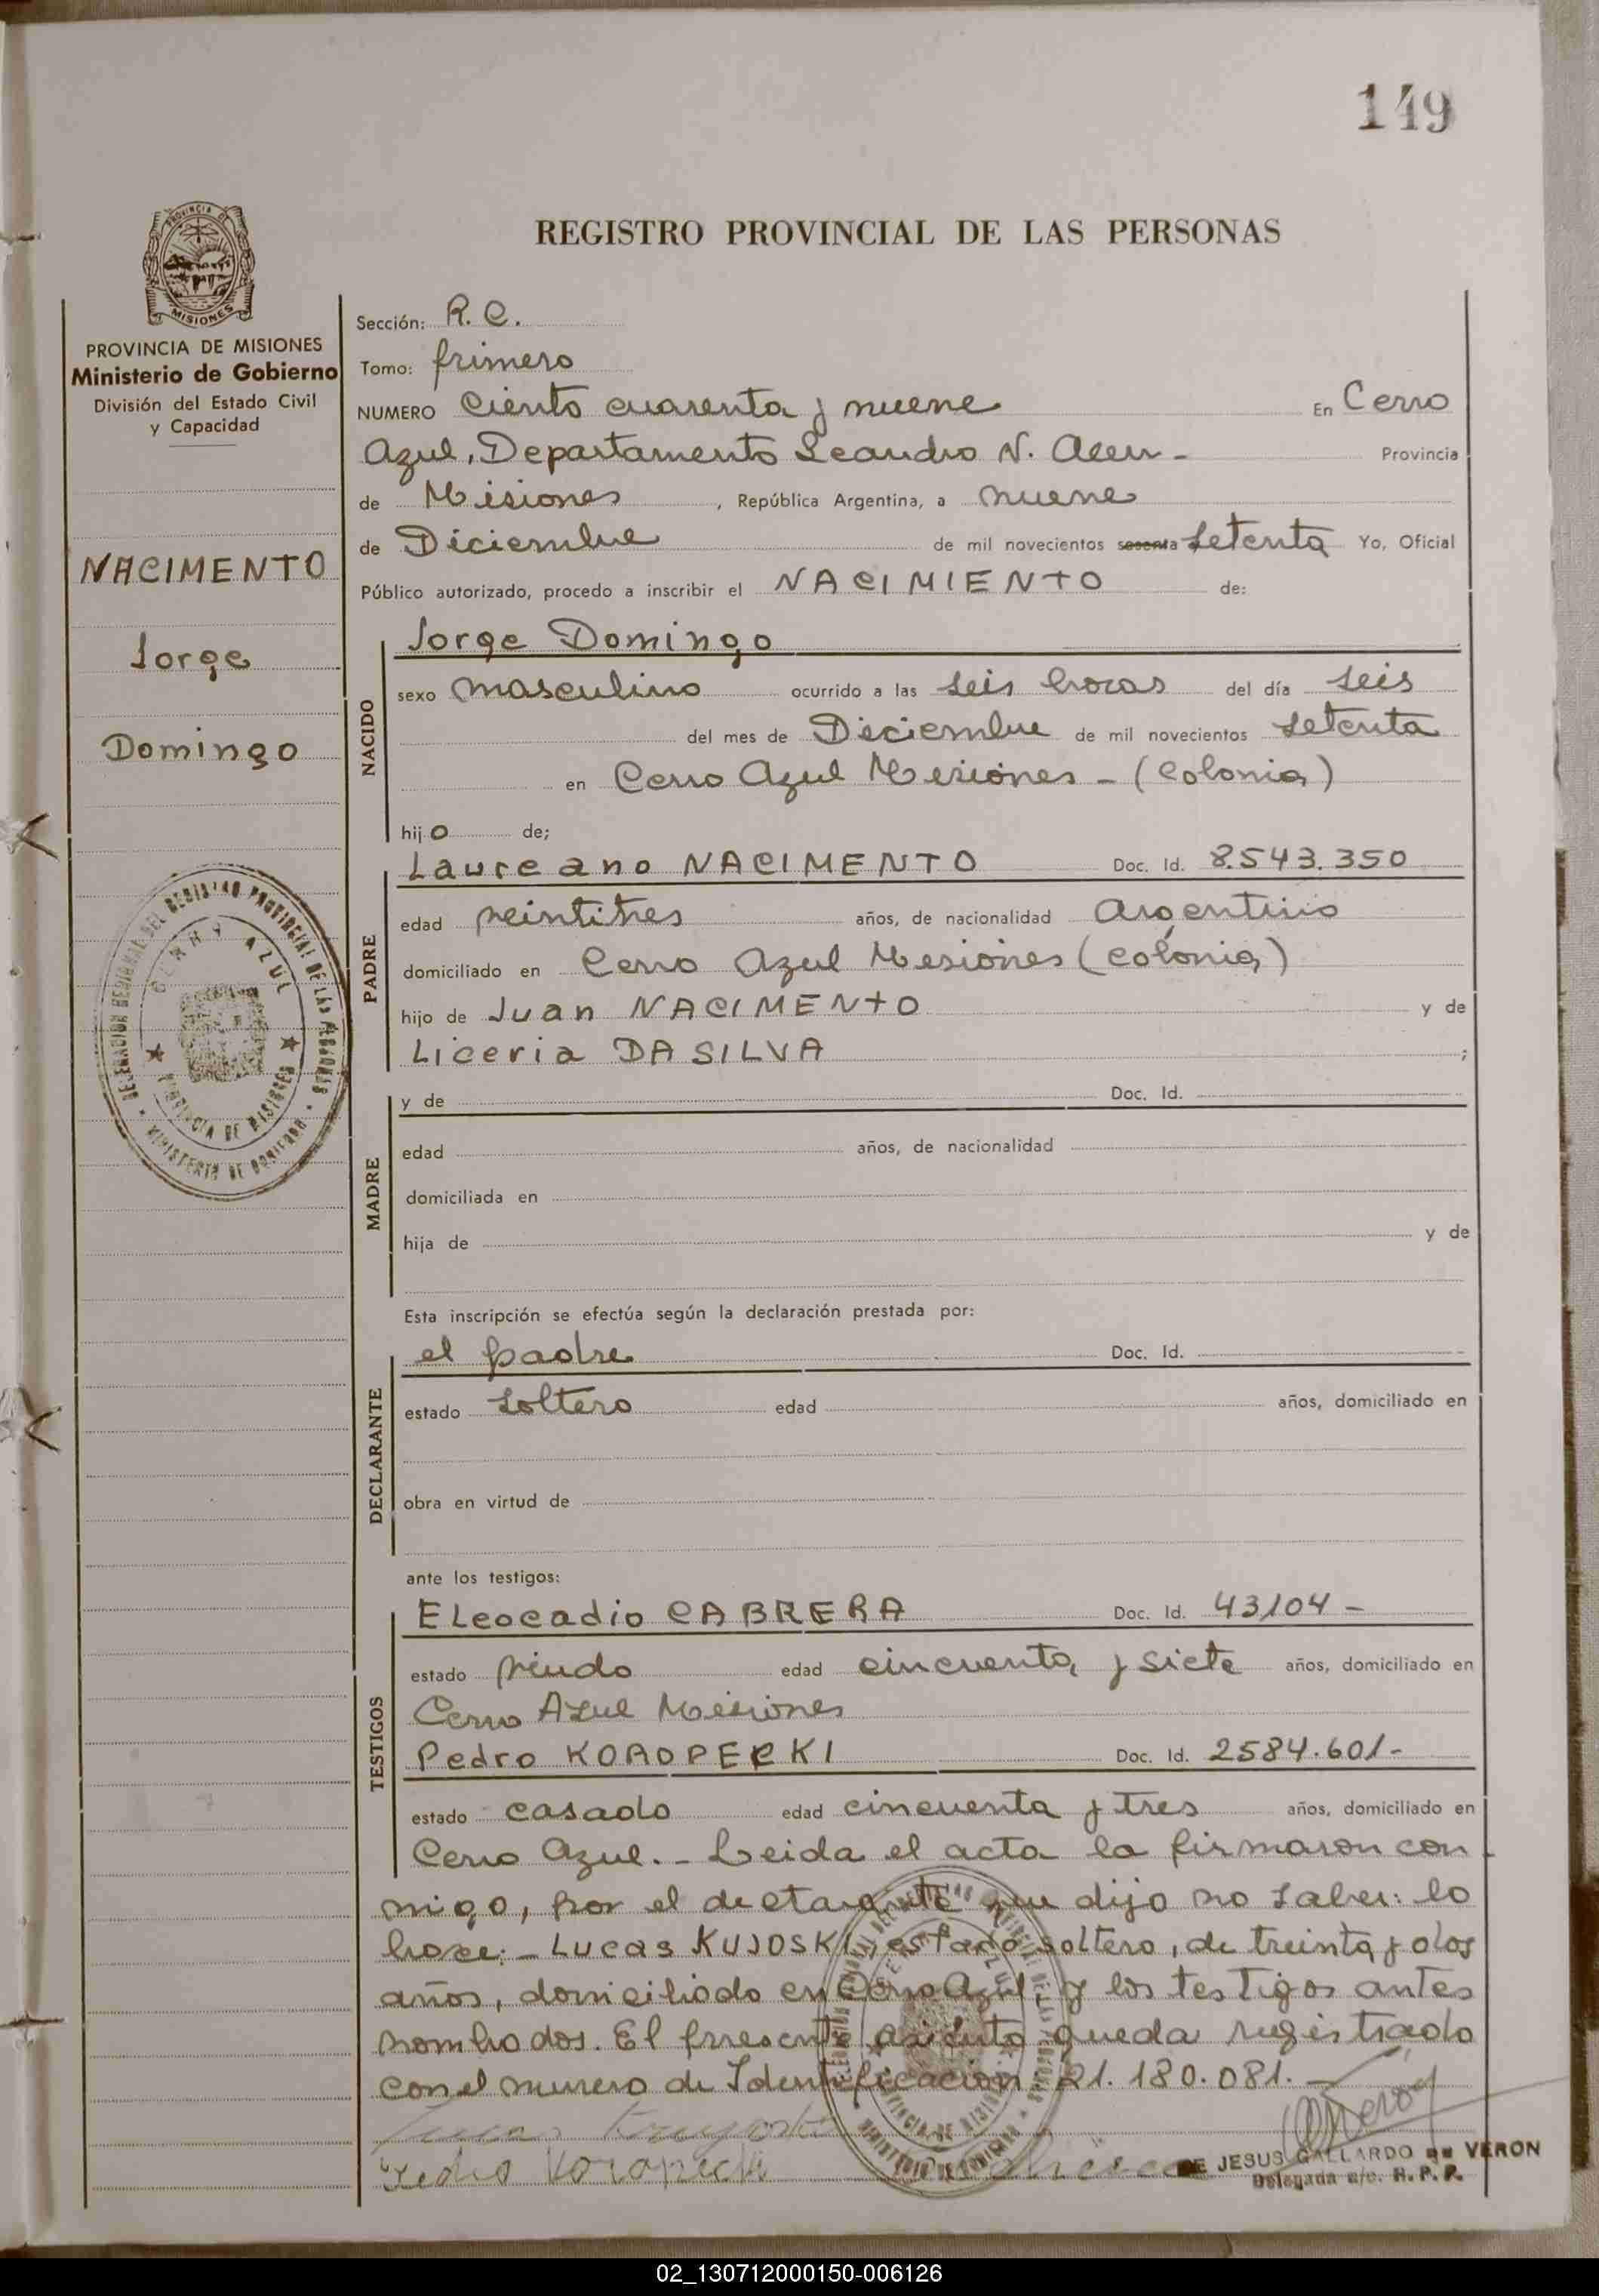 149
REGISTRO PROVINCIAL DE LAS PERSONAS
PROVINCIA DE MISIONES
Ministerio de Gobierno
División del Estado Civil
y Capacidad
NACIMENTO
Jorge
Domingo
Sección: R. C.
Tomo: primero
NUMERO Ciento cuarenta y nueve En Cerro
Azul, Departamento Leandro N. Alem - Provincia
de Misiones, República Argentina, a nueve
de Diciembre de mil novecientos sesenta setenta Yo, Oficial
Público autorizado, procedo a inscribir el NACIMIENTO de:
NACIDO
Jorge Domingo
sexo masculino ocurrido a las seis horas del día seis
del mes de Diciembre de mil novecientos setenta
en Cerro Azul Misiones - (Colonia)
hijo de;
PADRE
Laureano NACIMENTO Doc. Id. 8.543.350
edad veintitres años, de nacionalidad Argentino
domiciliado en Cerro Azul Misiones (Colonia)
hijo de Juan NACIMENTO y de
Liceria DA SILVA ;
MADRE
y de Doc. Id.
edad años, de nacionalidad
domiciliada en
hija de y de
Esta inscripción se efectúa según la declaración prestada por:
DECLARANTE
el padre Doc. Id.
estado soltero edad años, domiciliado en
obra en virtud de
ante los testigos:
TESTIGOS
ELeocadio CABRERA Doc. Id. 43104 -
estado viudo edad cincuenta y siete años, domiciliado en
Cerro Azul Misiones
Pedro KOROPECKI Doc. Id. 2584.601-
estado casado edad cincuenta y tres años, domiciliado en
Cerro Azul. - Leida el acta la firmaron con
migo, por el declarante que dijo no saber: lo
hace: - Lucas KUJOSKI, estado soltero, de treinta y dos
años, domiciliado en Cerro Azul, y los testigos antes
nombrados. El presente asiento queda registrado
con el numero de Identificación 21.180.081. -
DE JESUS GALLARDO DE VERON
Delegada a/c. R. P. P.
DELEGACION REGIONAL DEL REGISTRO PROVINCIAL DE LAS PERSONAS
CERRO AZUL
PROVINCIA DE MISIONES
MINISTERIO DE GOBIERNO
02_130712000150-006126